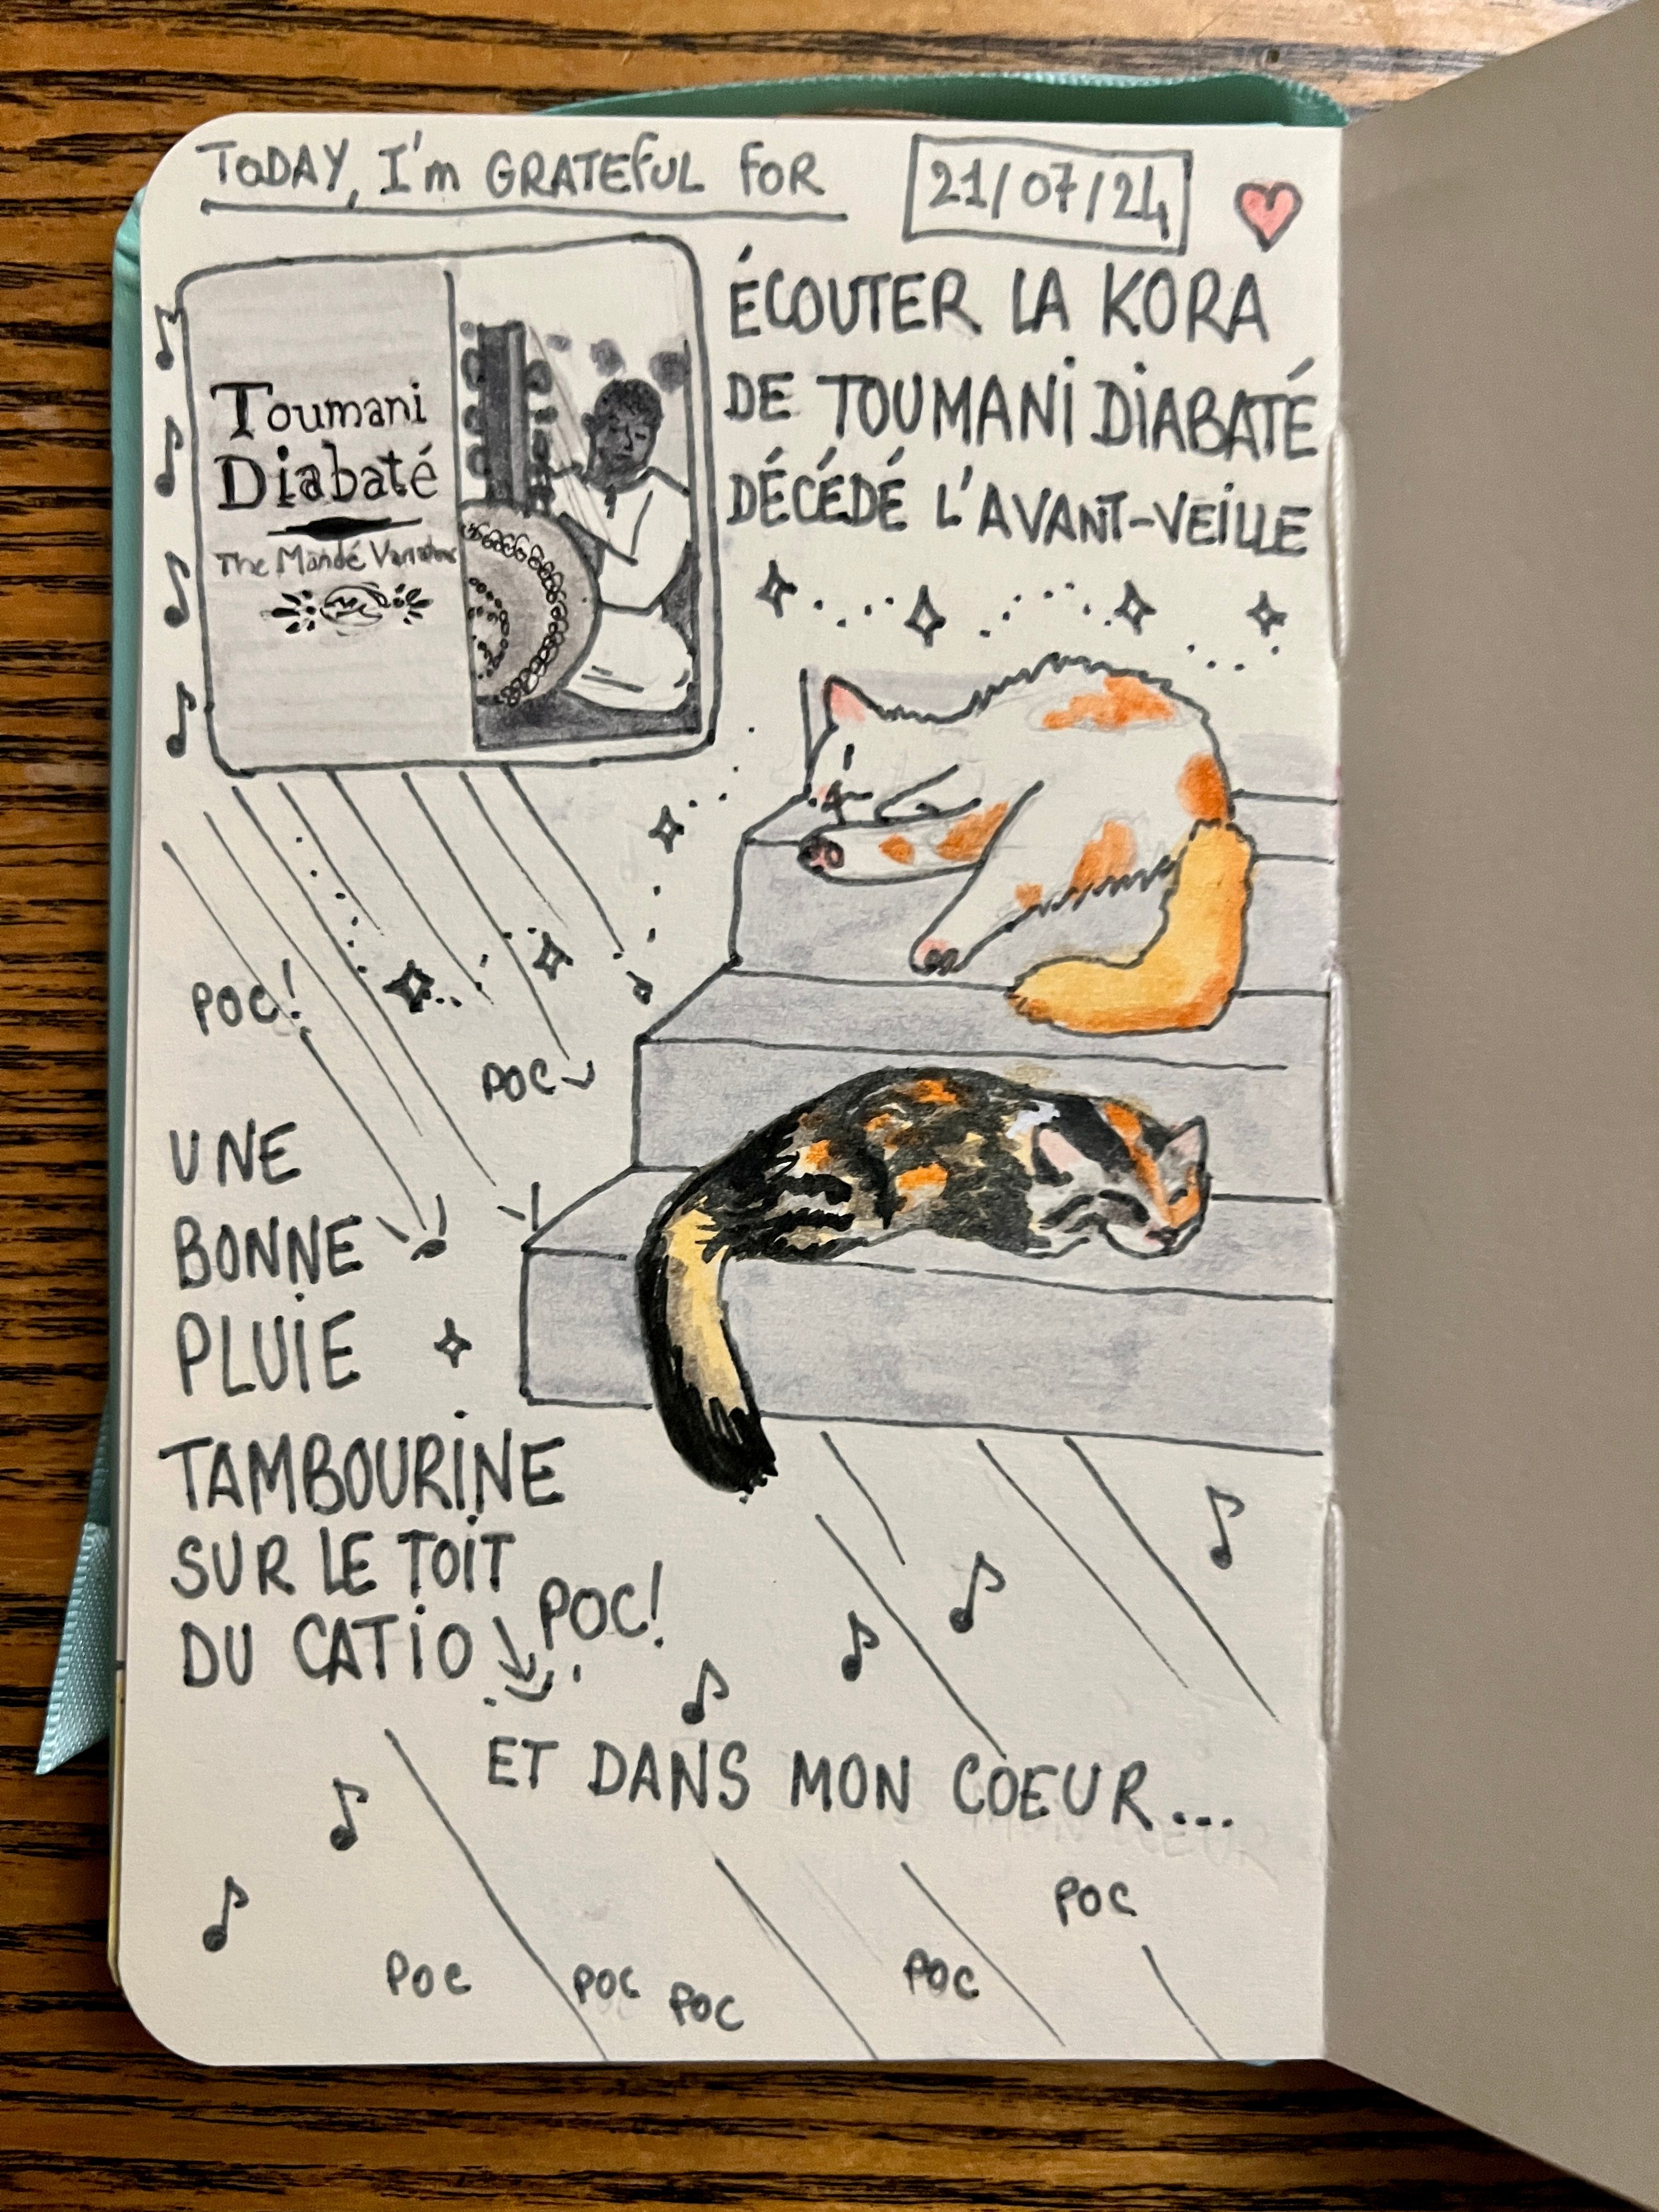 TODAY, I'm GRATEFUL FOR
21/07/24
Toumani
Diabaté
The Mandé Variations
ÉCOUTER LA KORA
DE TOUMANI DIABATÉ
DÉCÉDÉ L'AVANT-VEILLE
POC!
POC
UNE
BONNE
PLUIE
TAMBOURINE
SUR LE TOIT
DU CATIO
POC!
ET DANS MON COEUR...
POC
POC
POC
POC
POC